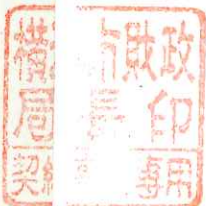 横 市財政
局 長印
契約 専用